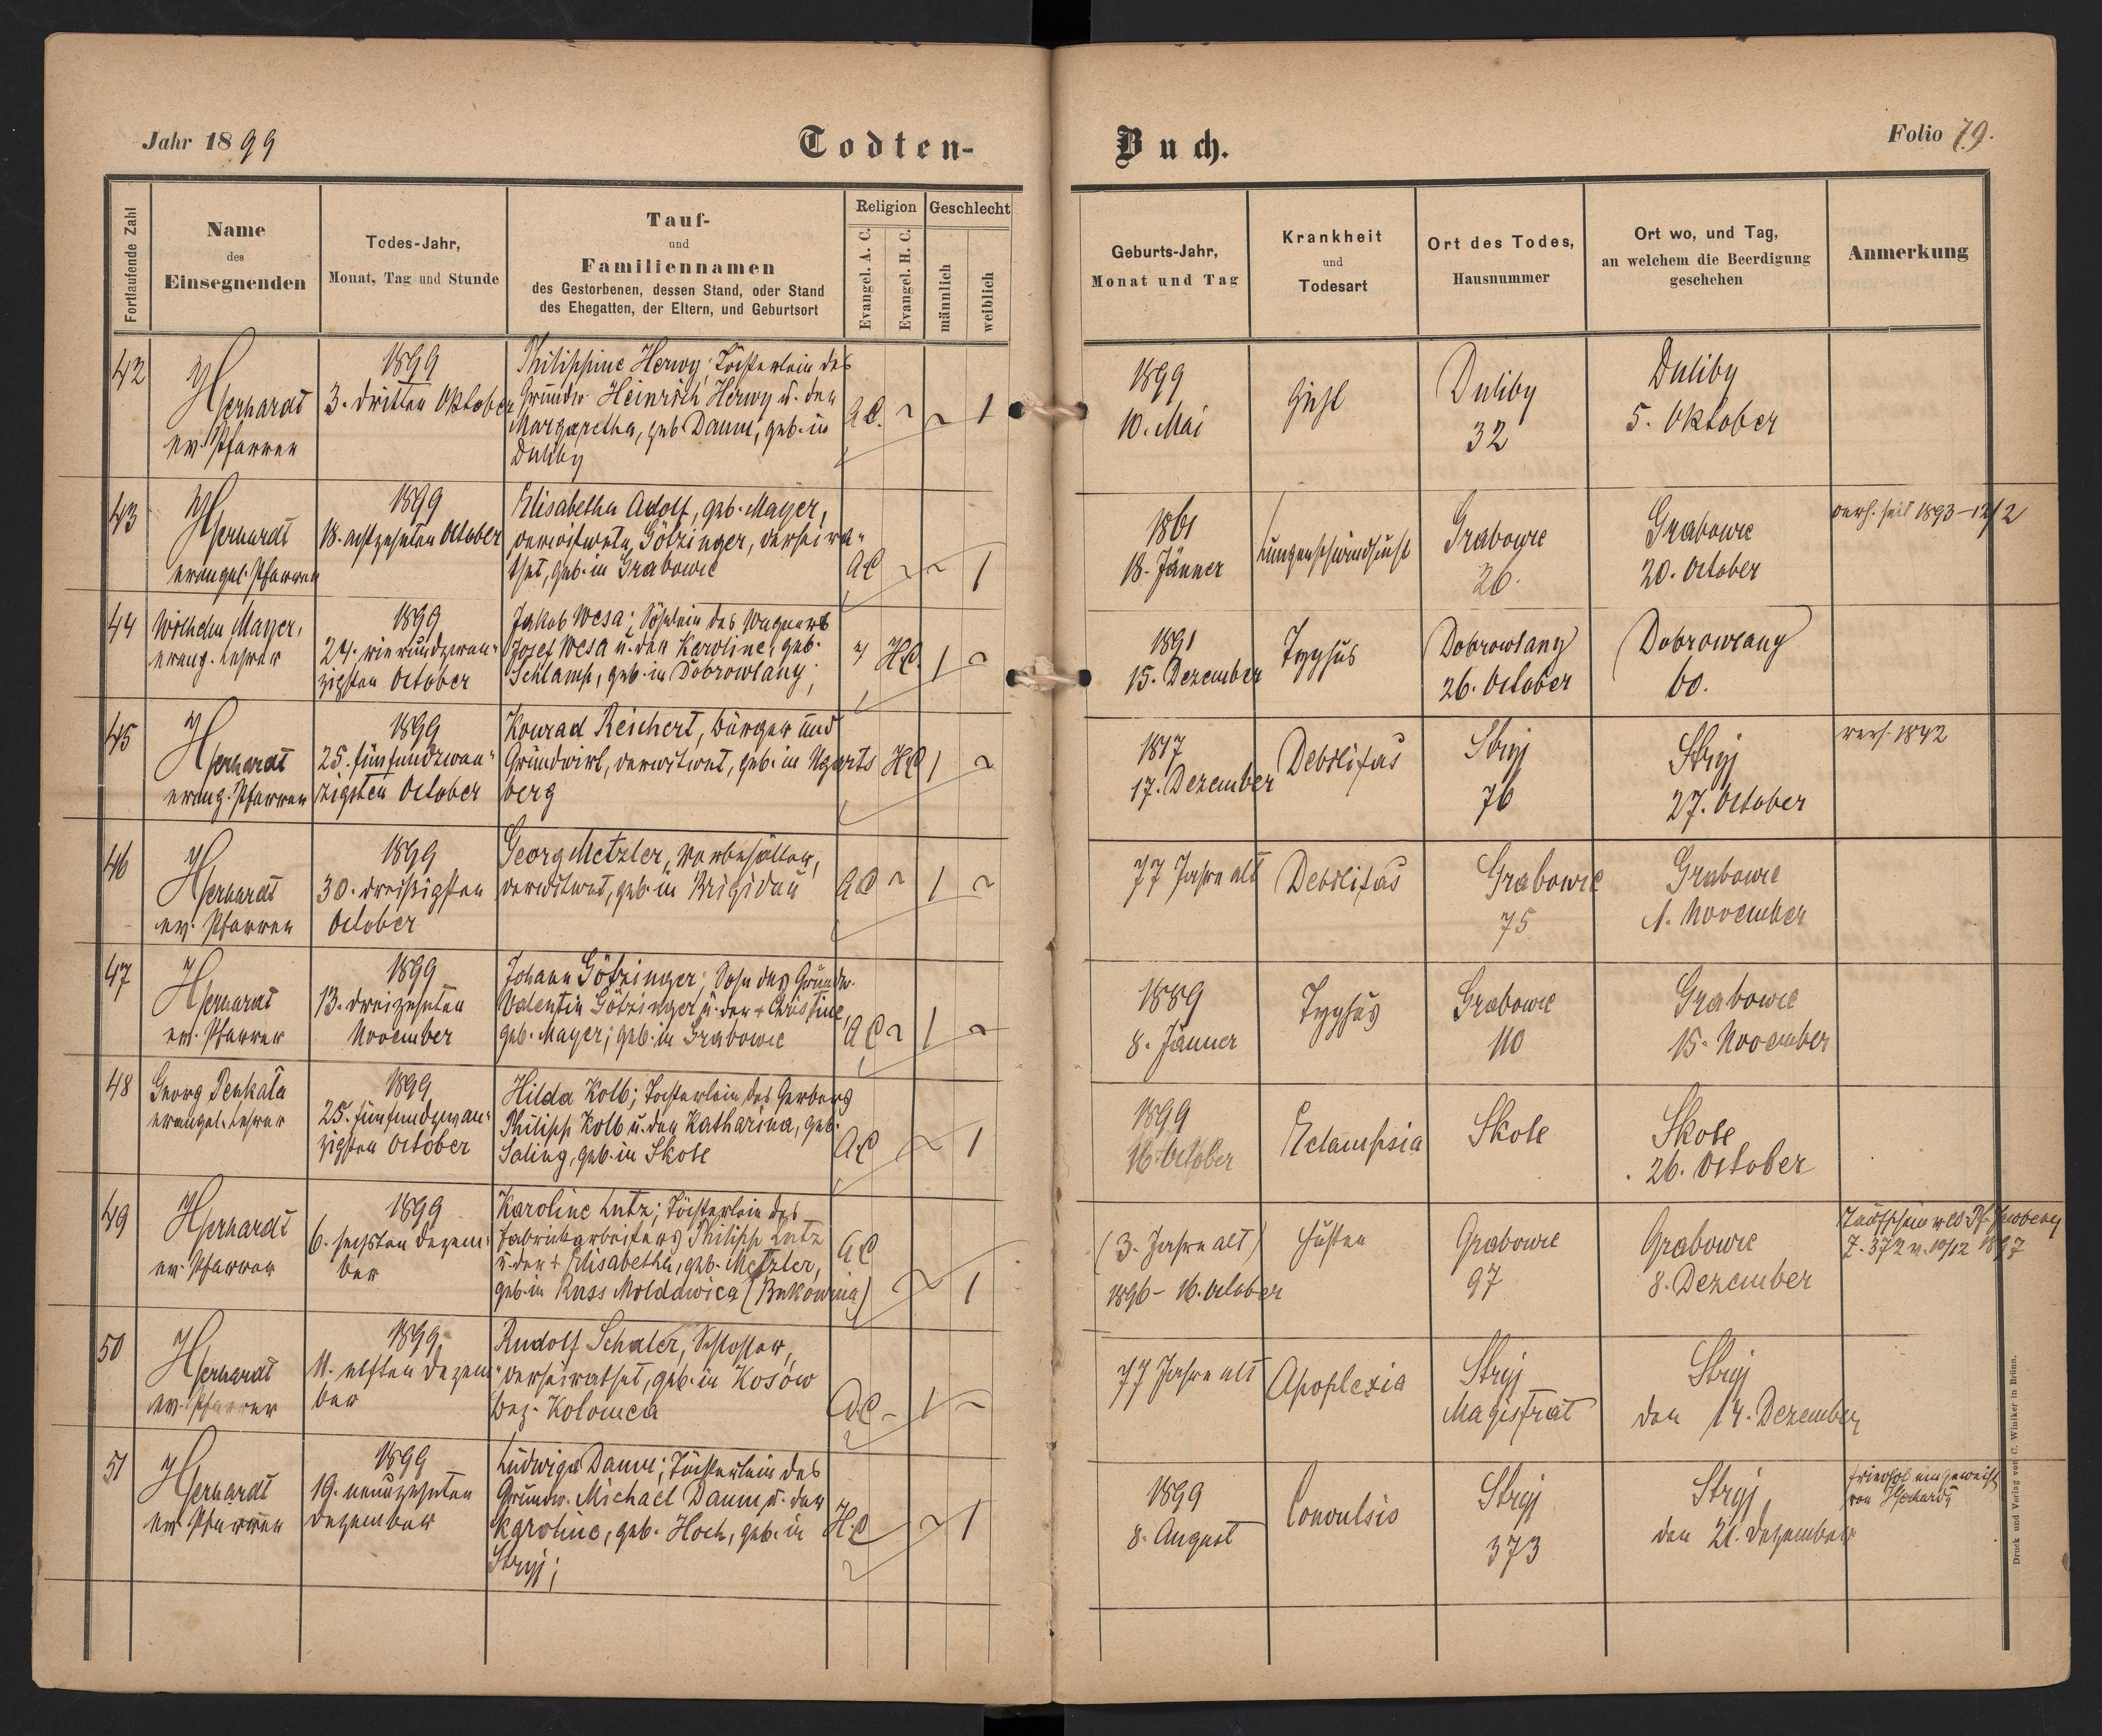 Jahr 1899
Todten-
Buch.
Folio 79.
Fortlaufende Zahl
Name
des
Einsegnenden
Todes-Jahr,
Monat, Tag und Stunde
Tauf-
und
Familiennamen
des Gestorbenen, dessen Stand, oder Stand
des Ehegatten, der Eltern, und Geburtsort
Religion
Evangel. A. C.
Evangel. H. C.
Geschlecht
männlich
weiblich
Geburts-Jahr,
Monat und Tag
Krankheit
und
Todesart
Ort des Todes,
Hausnummer
Ort wo, und Tag,
an welchem die Beerdigung
geschehen
Anmerkung
42
ev. Pfarrer
1899
3. dritten Oktober
Philippine Herwy; Töchterlein des
Grundw. Heinrich Herwy u. der
Margaretha, geb. Daum, geb. in
Duliby
A.C.
1
1899
10. Mai
Duliby
32
Duliby
5. Oktober
43
evangel. Pfarrer
1899
18. achtzehnten October
Elisabetha Adolf, geb. Mayer,
verwitwete Götzinger, verheira-
thet, geb. in Grabowie
AC
1
1861
18. Jänner
Lungenschwindsucht
Grabowie
26.
Grabowie
20. October
verh. seit 1893-12/2
44
Wilhelm Mayer,
evang. Lehrer
1899
24. vierundzwan-
zigsten October
Jakob Wesa; Söhnlein des Wagners
Josef Wesa u. der Karoline, geb.
Schlamp, geb. in Dobrowlany;
HC
1
1891
15. Dezember
Typhus
Dobrowlany
26. October
Dobrowlany
60.
45
evang. Pfarrer
1899
25. fünfundzwan-
zigsten October
Konrad Reichert, Bürger und
Grundwirt, verwitwet, geb. in Ugarts
berg
HC
1
1817
17. Dezember
Debilitas
Stryj
76
Stryj
27. October
verh. 1842
46
ev. Pfarrer
1899
30. dreißigsten
October
Georg Metzler, Vorbehälter,
verwitwet, geb. in Brigidau
AC
1
77 Jahre alt
Debilitas
Grabowie
75
Grabowie
1. November
47
ev. Pfarrer
1899
13. dreizehnten
November
Johann Götzinger; Sohn des Grundw.
Valentin Götzinger u. der + Christine,
geb. Mayer; geb. in Grabowie
AC
1
1889
8. Jänner
Typhus
Grabowie
110
Grabowie
15. November
48
Georg Penkala
evangel. Lehrer
1899
25. fünfundzwan-
zigsten October
Hilda Kolb; Tochterlein des Gerbers
Philipp Kolb u. der Katharina, geb.
Saling, geb. in Skole
AC
1
1899
16. October
Eclampsia
Skole
Skole
26. October
49
ev. Pfarrer
1899
6. sechsten Dezem-
ber
Karoline Lutz; Töchterlein des
Fabrikarbeiters Philipp Lutz
u. der + Elisabetha, geb. Metzler,
geb. in Russ Moldawica (Bukowina)
AC
1
(3. Jahre alt)
1896 - 16. October
Husten
Grabowie
97
Grabowie
8. Dezember
Z. 372 v. 10/12 1897
50
ev. Pfarrer
1899
11. elften Dezem-
ber
Rudolf Schaler, Schlosser,
verheirathet, geb. in Kosów
Bez. Kolomea
AC
1
77 Jahre alt
Apoplexia
Stryj
Magistrat
Stryj
den 14. Dezember
51
ev. Pfarrer
1899
19. neunzehnten
Dezember
Ludwiga Daum; Töchterlein des
Grundw. Michael Daum u. der
Karoline, geb. Hoch, geb. in
Stryj;
H.C
1
1899
8. August
Convulsio
Stryj
373
Stryj
den 21. Dezember
Friedhof eingeweiht
von
Druck und Verlag von C. Winiker in Brünn.